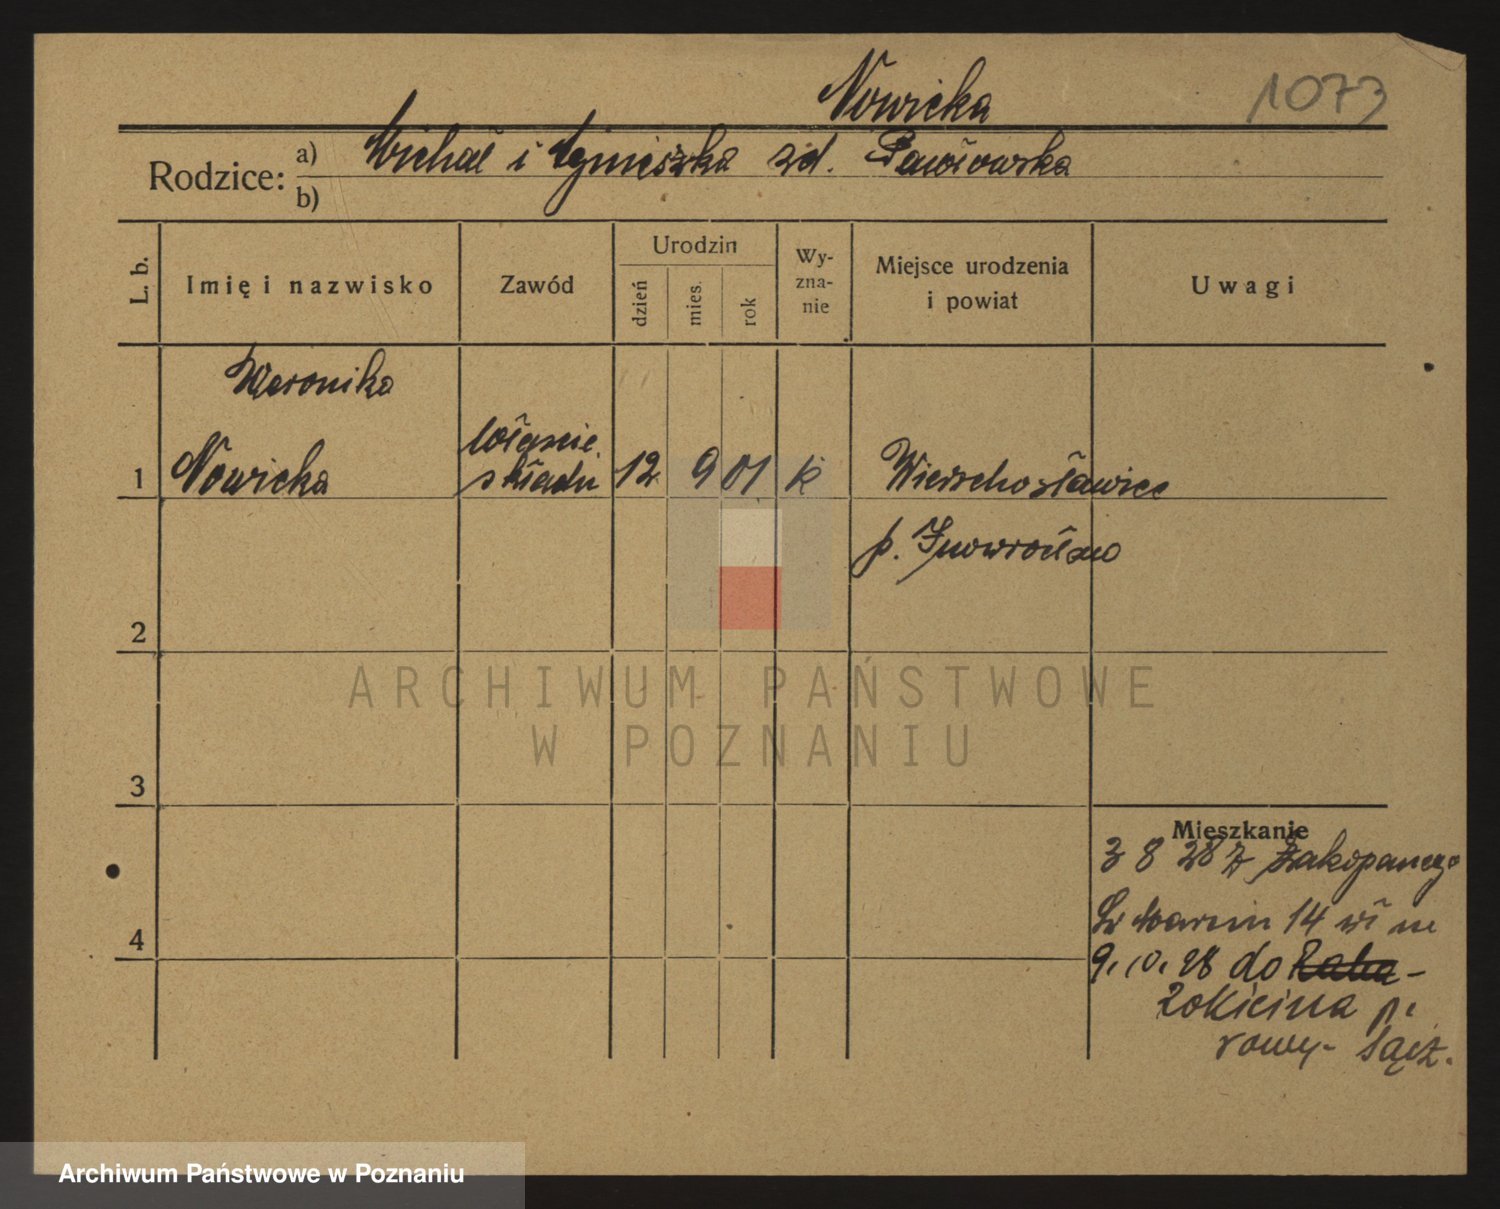 Nowicka
1073
Rodzice:
a) Michał i Agnieszka zd. Pawłowska
b)
L. b.
Imię i nazwisko
Zawód
Urodzin
dzień
mies.
rok
Wy-
zna-
nie
Miejsce urodzenia
i powiat
Uwagi
Weronika
1 Nowicka
składu
12 9 01 k
Wierzchosławice
p. Inowrocław
2
ARCHIWUM PAŃSTWOWE
W POZNANIU
3
Mieszkanie
3 8 28 z Zakopanego
Św Marcin 14
4
9. 10. 28 do Raba-
Rokicina p.
nowy- Sącz.
Archiwum Państwowe w Poznaniu